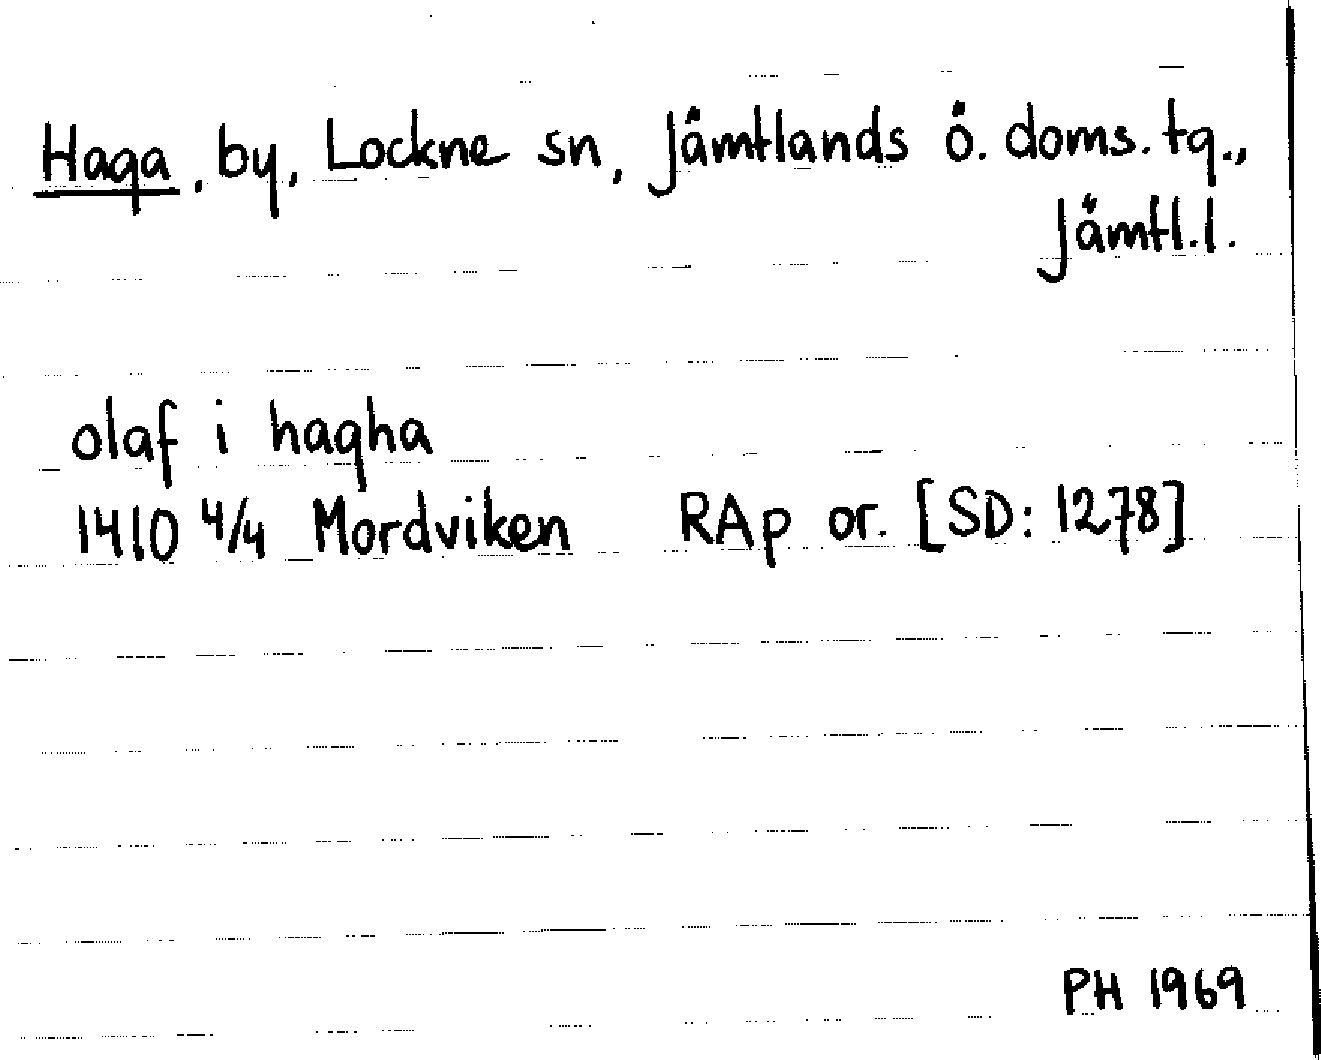 Haga, by, Lockne sn, Jämtlands ö. doms. tg.,
Jämtl.l.
olaf i hagha
1410 4/4 Mordviken RAp or. [SD: 1278]
PH 1969